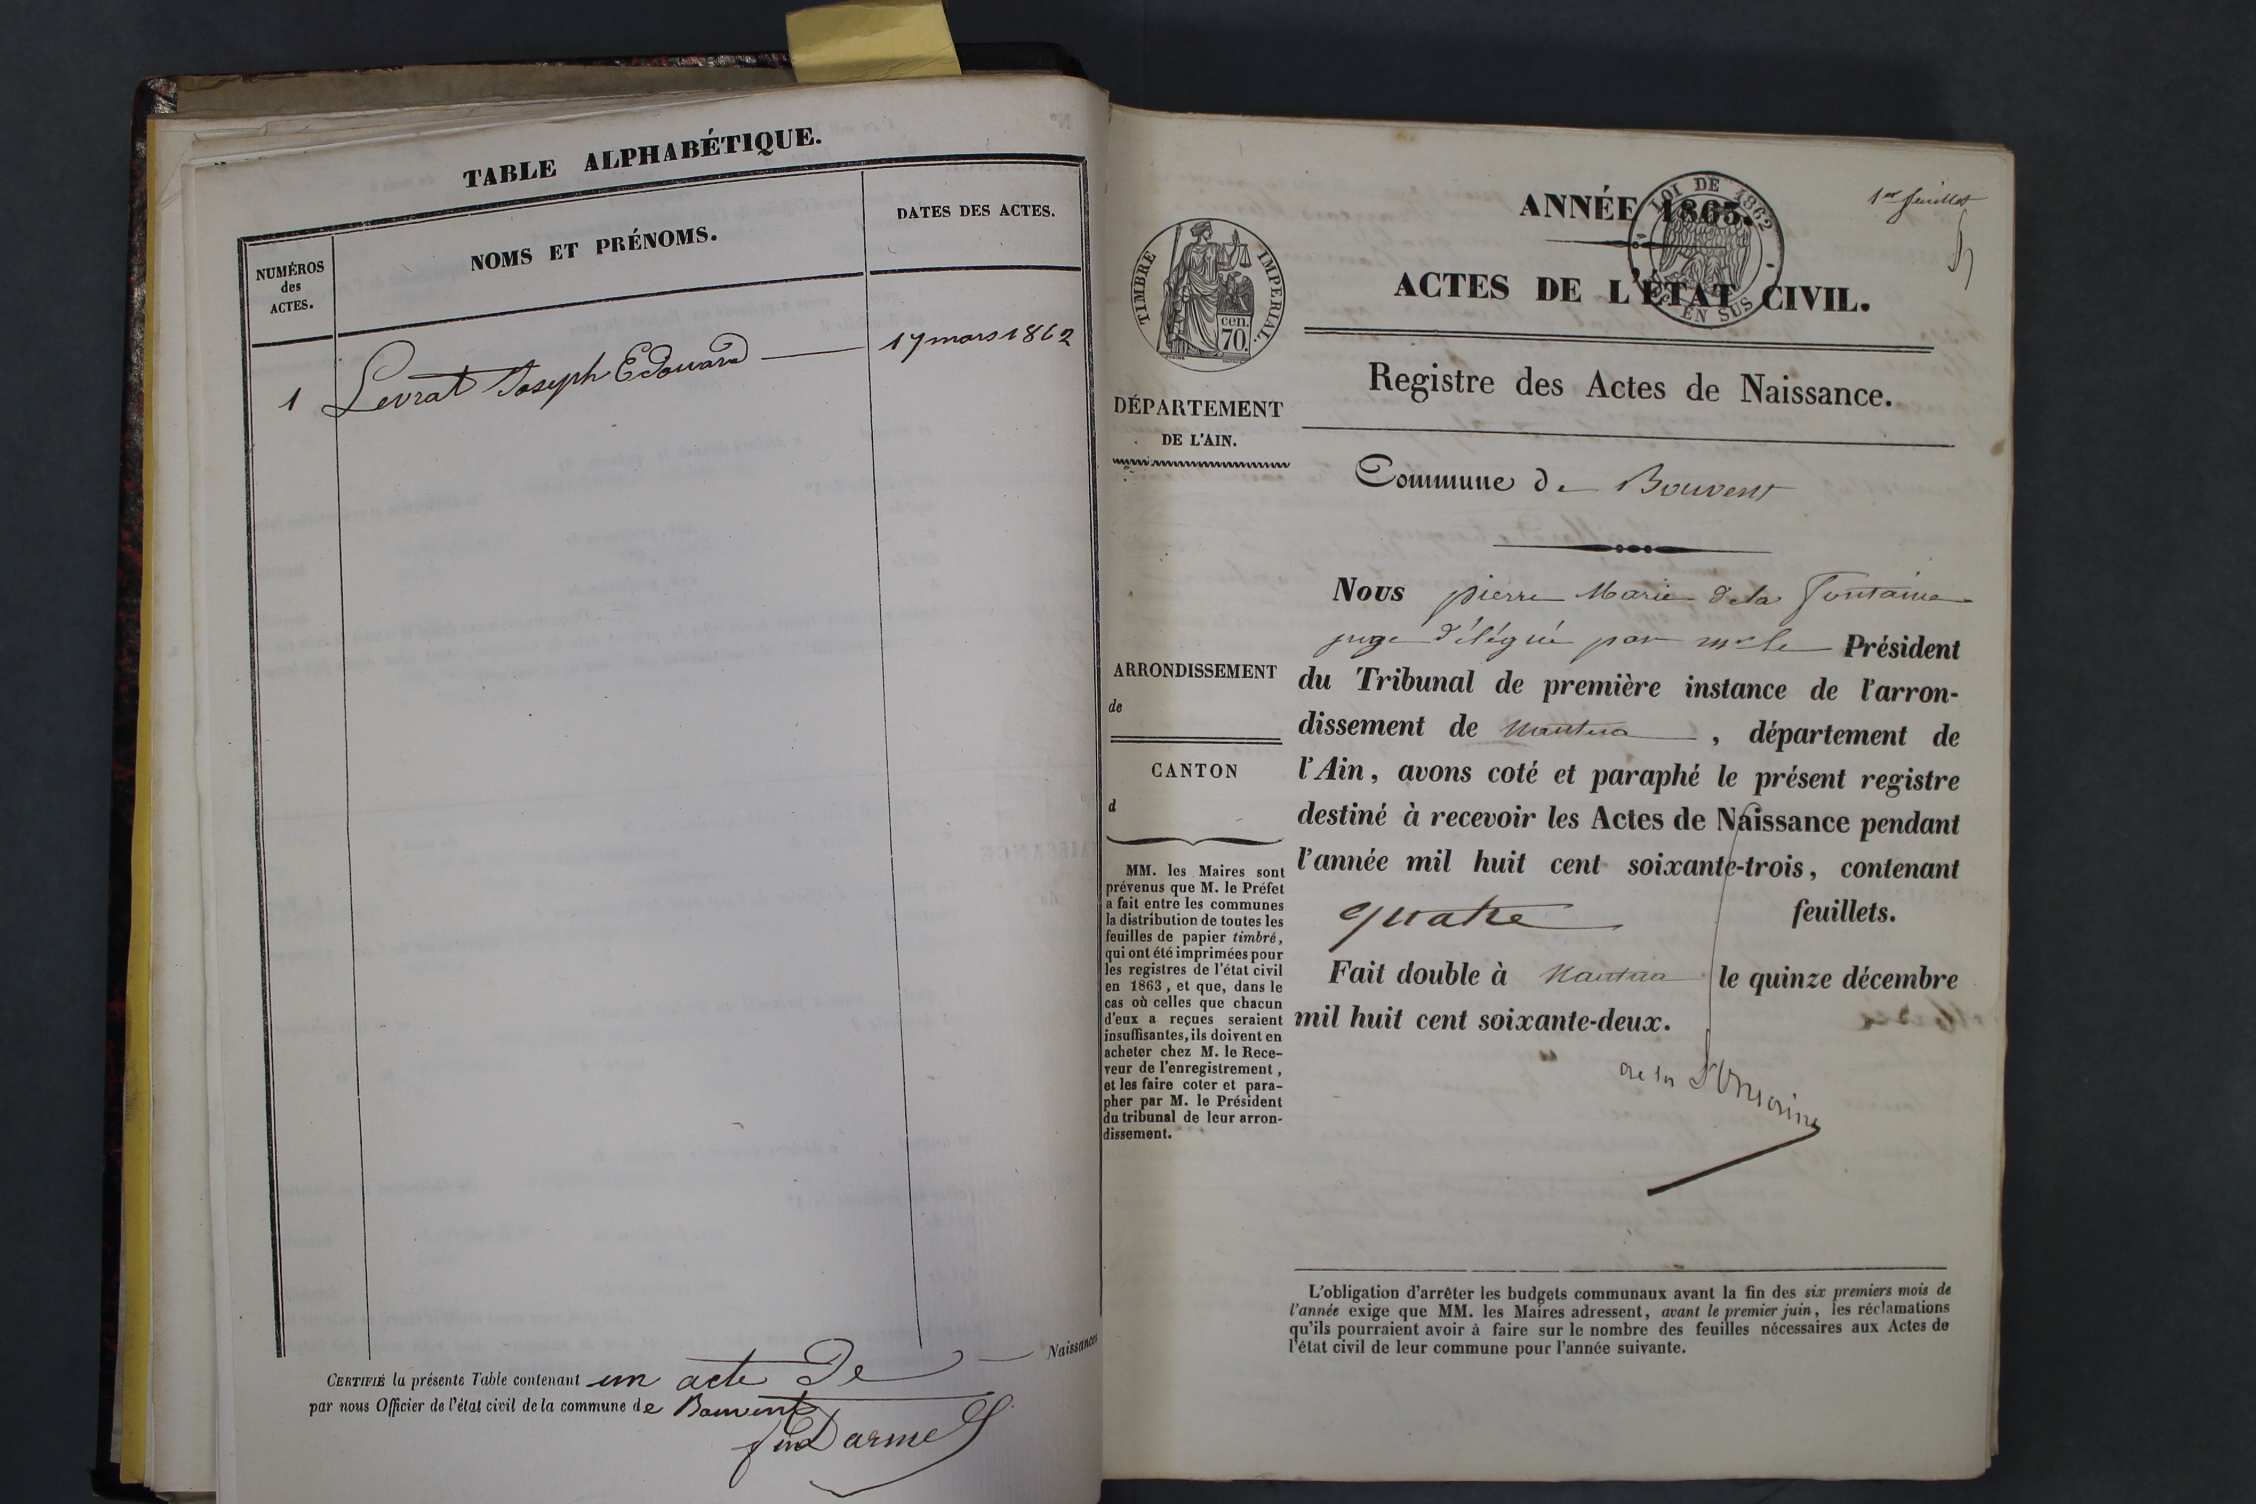 TABLE ALPHABÉTIQUE.
NUMÉROS
des
ACTES.
NOMS ET PRÉNOMS.
DATES DES ACTES.
1 Levrat Joseph Edouard 17 mars 1862
CERTIFIÉ la présente Table contenant un acte De Naissances
par nous Officier de l'état civil de la commune de Bouvent
1er feuillet
ANNÉE 1863.
LOI DE 1862
EN SUS
TIMBRE IMPERIAL.
cen.
70.
ACTES DE L'ÉTAT CIVIL.
Registre des Actes de Naissance.
DÉPARTEMENT
DE L'AIN.
Commune de Bouvent
ARRONDISSEMENT
de
CANTON
d
MM. les Maires sont
prévenus que M. le Préfet
a fait entre les communes
la distribution de toutes les
feuilles de papier timbré,
qui ont été imprimées pour
les registres de l'état civil
en 1863, et que, dans le
cas où celles que chacun
d'eux a reçues seraient
insuffisantes, ils doivent en
acheter chez M. le Rece-
veur de l'enregistrement,
et les faire coter et para-
pher par M. le Président
du tribunal de leur arron-
dissement.
Nous pierre Marie de la Fontaine
juge délégué par mr le Président
du Tribunal de première instance de l'arron-
dissement de Nantua, département de
l'Ain, avons coté et paraphé le présent registre
destiné à recevoir les Actes de Naissance pendant
l'année mil huit cent soixante-trois, contenant
quatre feuillets.
Fait double à Nantua le quinze décembre
mil huit cent soixante-deux.
L'obligation d'arrêter les budgets communaux avant la fin des six premiers mois de
l'année exige que MM. les Maires adressent, avant le premier juin, les réclamations
qu'ils pourraient avoir à faire sur le nombre des feuilles nécessaires aux Actes de
l'état civil de leur commune pour l'année suivante.